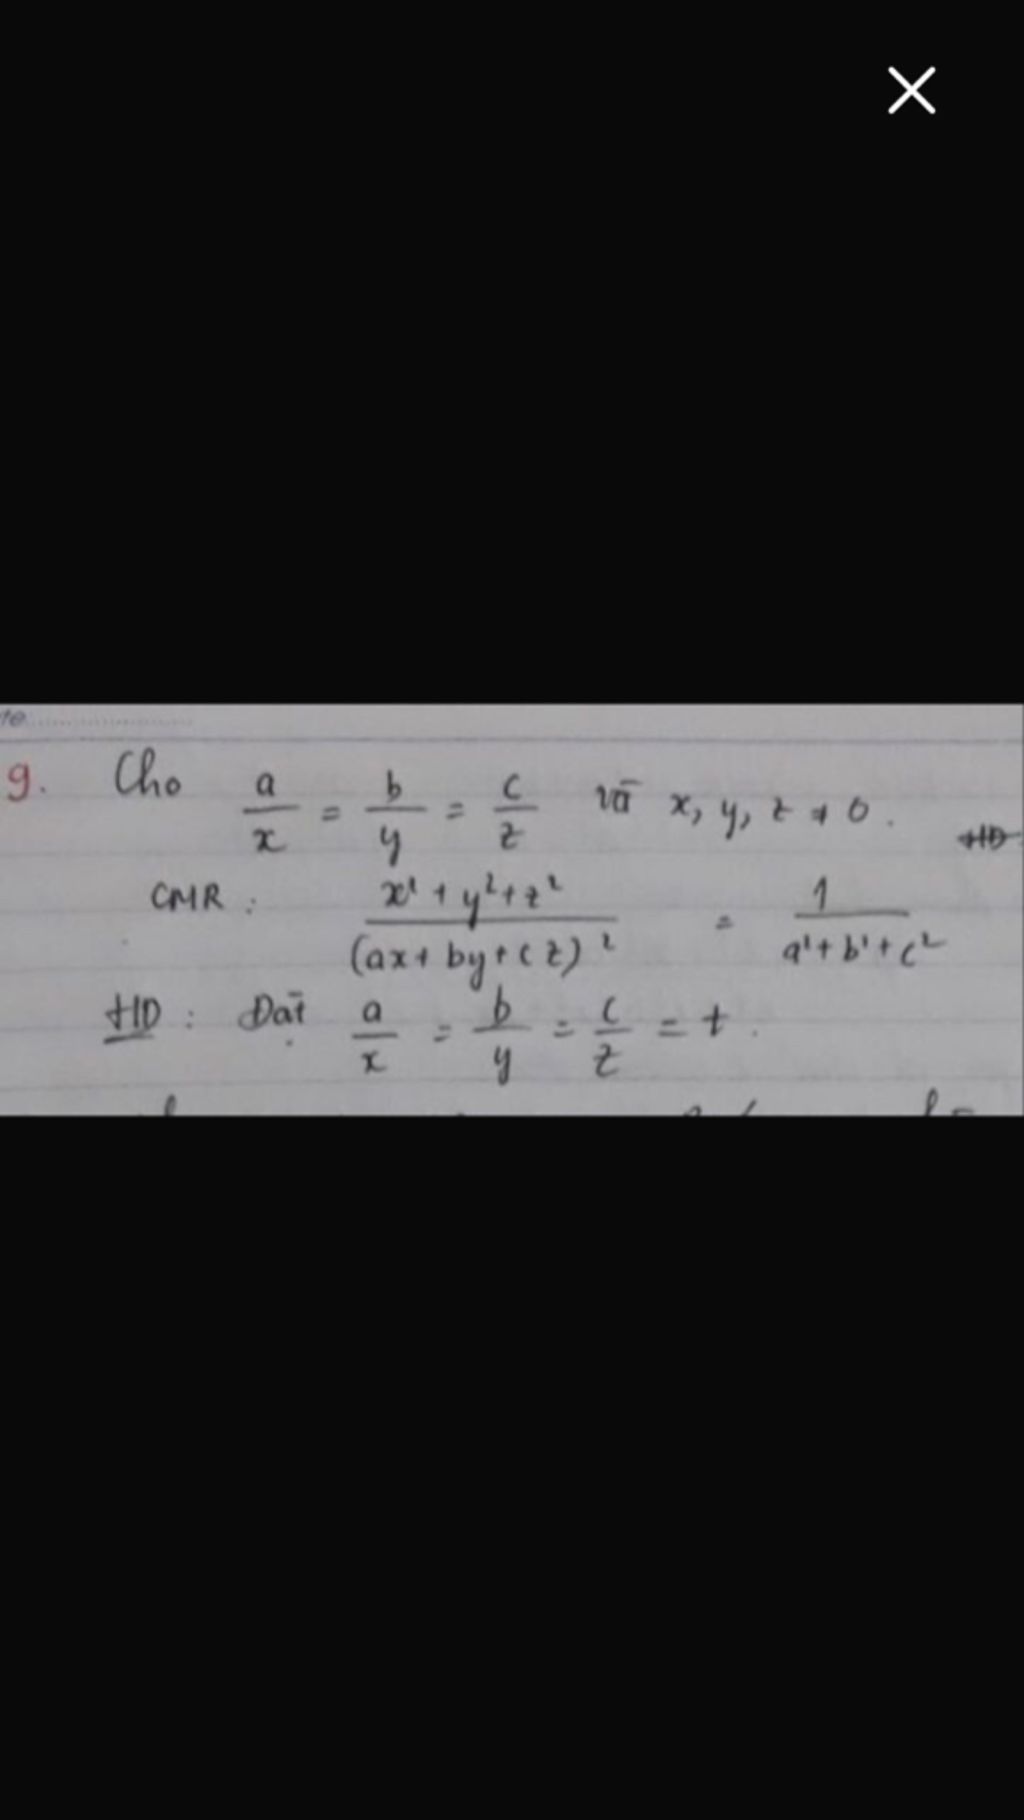 te
9. Cho a/x = b/y = c/z và x, y, z ≠ 0.
CMR: (x² + y² + z²)/(ax + by + cz)² = 1/(a² + b² + c²)
HD: Đặt a/x = b/y = c/z = t.